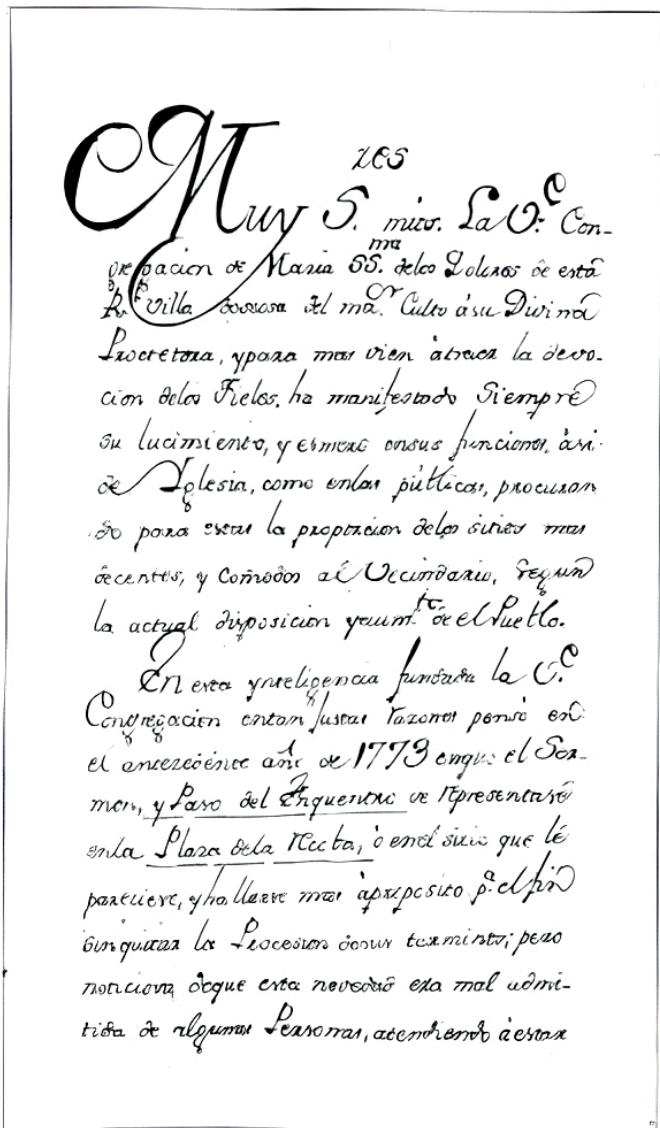 res
Muy S. mios. La V.e Con-
gregacion de Maria SS.ma delos Dolores de esta
R.l Villa deseosa del ma.or Culto à su Divina
Protectora, y para mas vien àtraer la devo-
cion delos Fieles, ha manifestado Siempre
su lucimiento, y esmero ensus funciones, àsi
de Yglesia, como enlas públicas, procuran
do para estas la proporcion delos sitios mas
decentes, y Comodos al Vecindario, segun
la actual disposicion y aum.to de el Pueblo.
En esta ynteligencia fundada la V.e
Congregacion entan Justas razones pensó en
el antecedente año de 1773 enque el Ser-
mon, y Paso del Enquentro se representase
enla Plaza dela Recta, ò enel sitio que le
pareciere, y hallare mas àproposito p.a el fin
sin quitar la Procesion desus terminos; pero
noticiosa deque esta novedad era mal admi-
tida de algunas Personas, atendiendo à estar